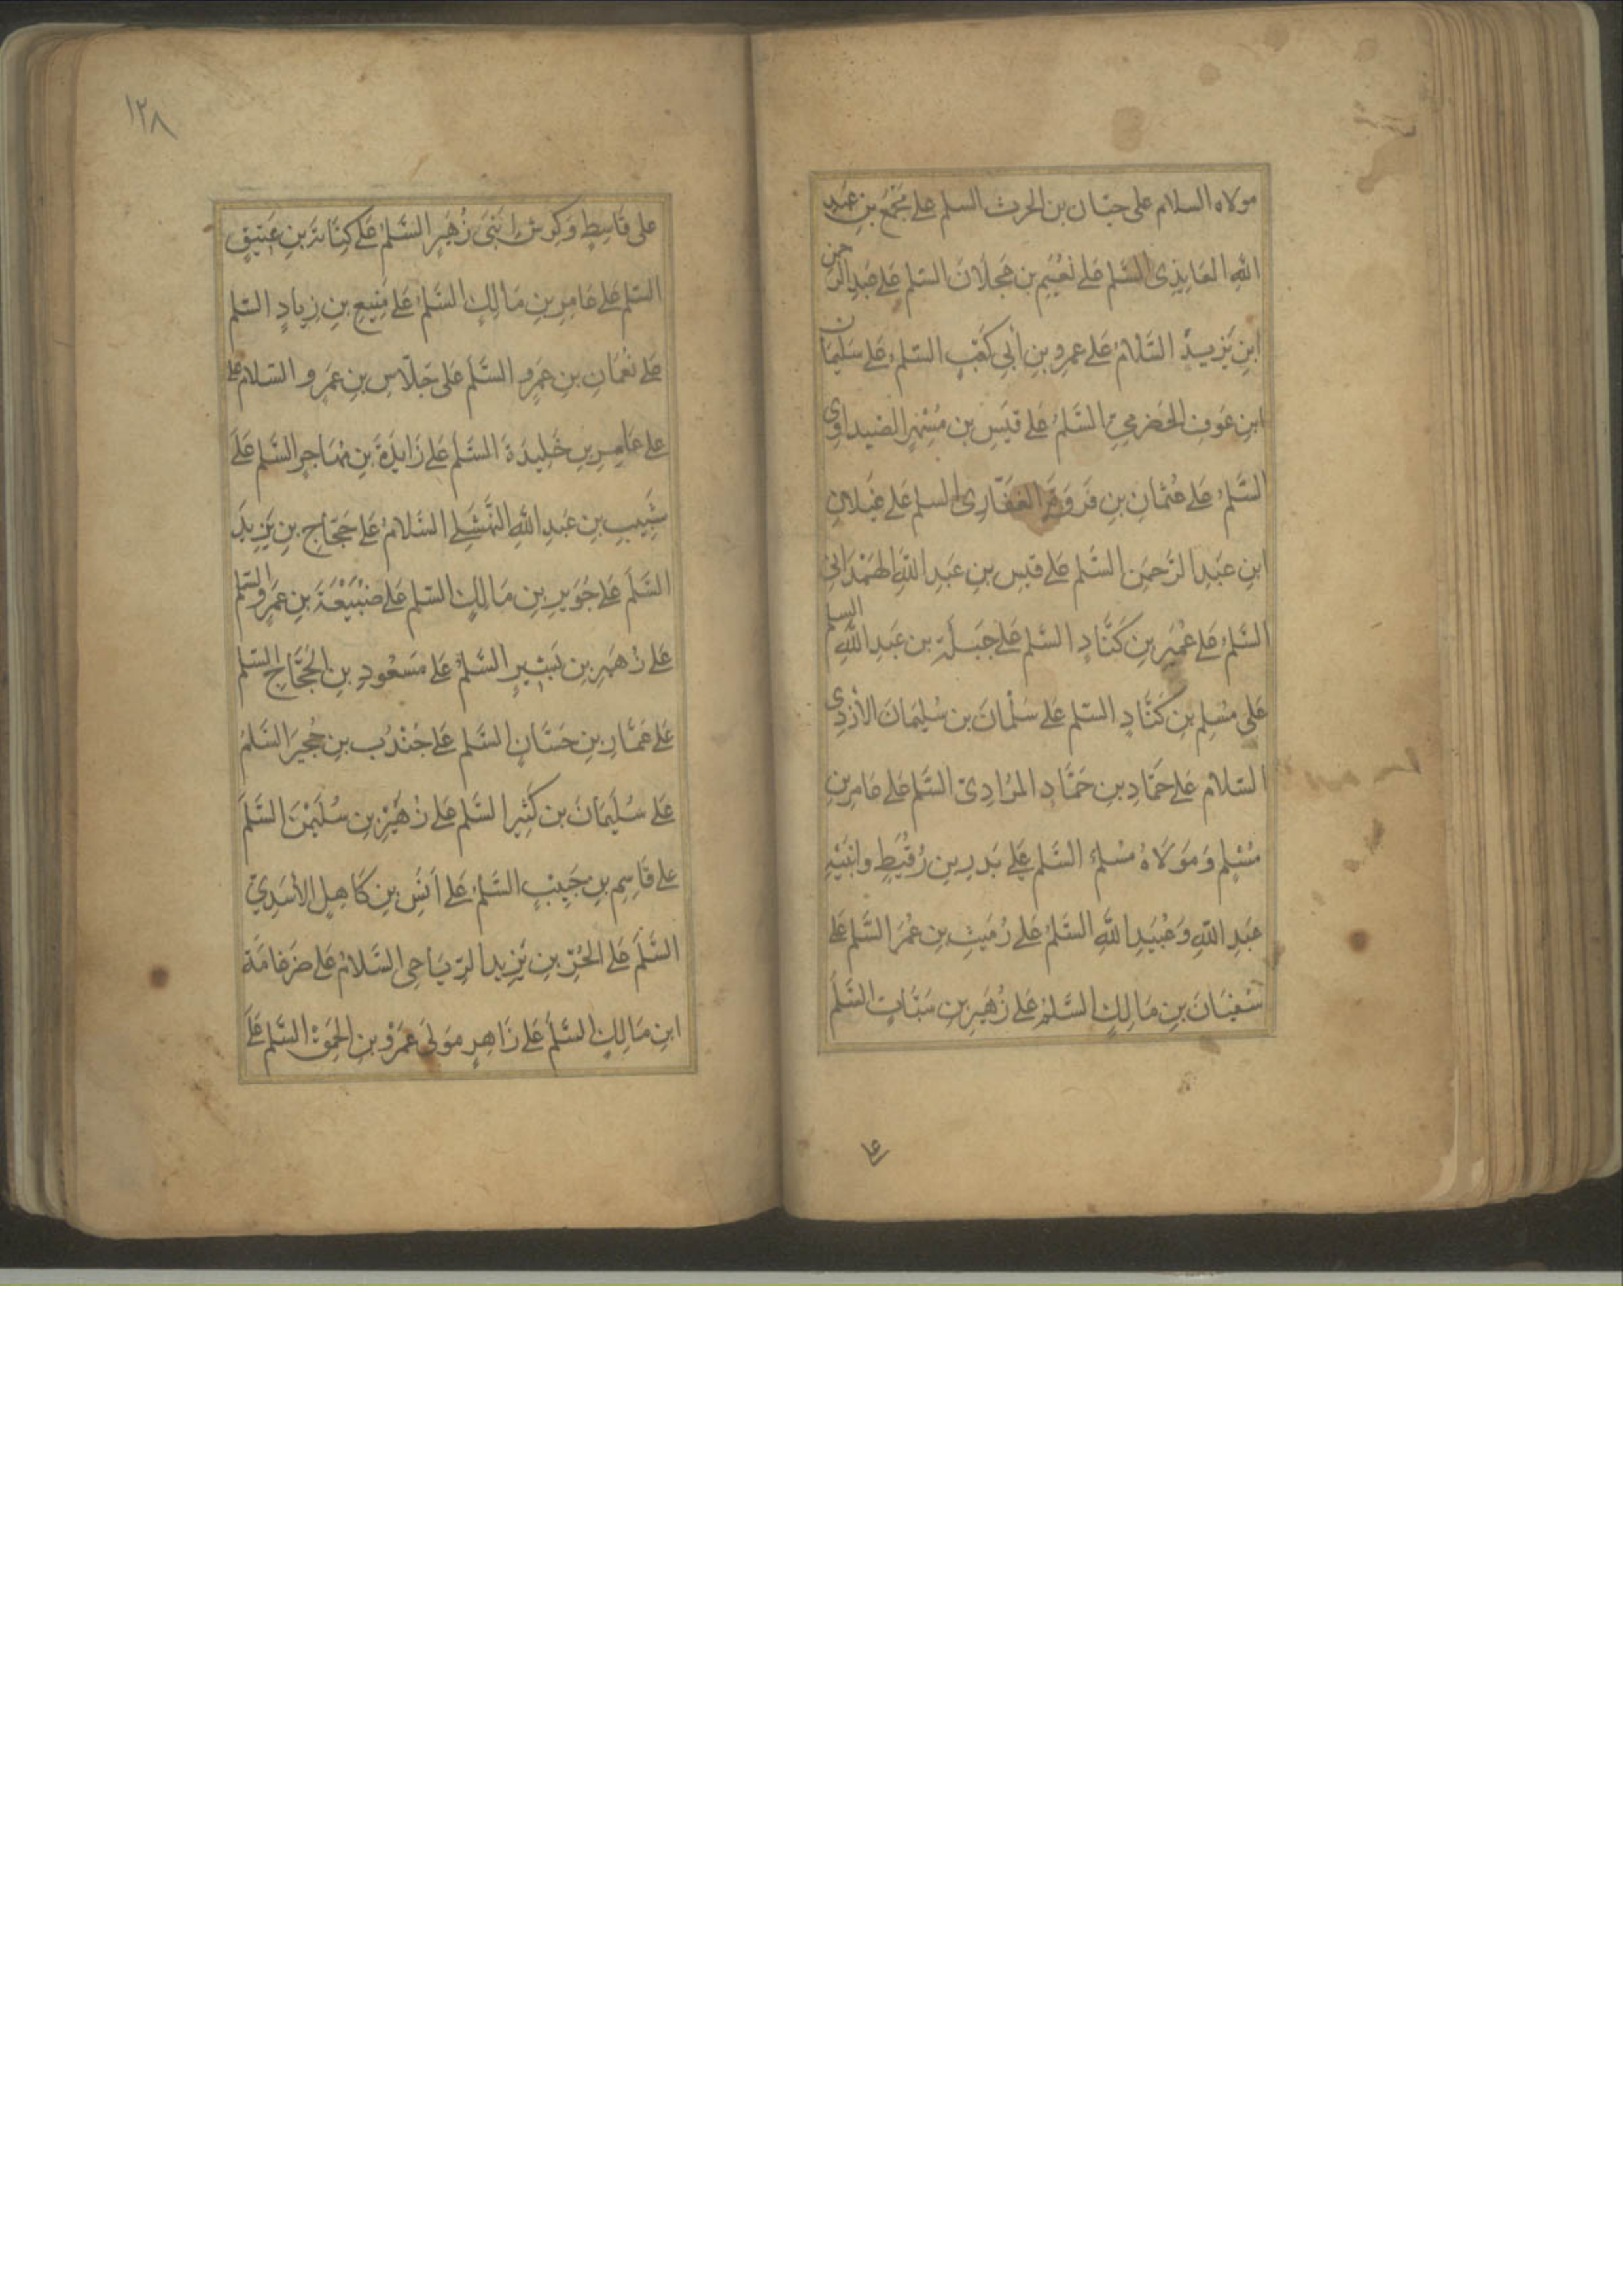 مولاه السلام على حيان بن الحرث السلم على مجمع بن عبد
الله العايذى السلم على نعيم بن عجلان السلم على عبد الرحمن
ابن يزيد السلام على عمرو بن أبي كعب السلم على سليمان
ابن عوف الحضرمي السلم على قيس بن مسهر الصيداوى
السلم على عثمان بن فروة الغفارى السلم على غيلان
ابن عبد الرحمن السلم على قيس بن عبد الله الهمدانى
السلم على عمير بن كناد السلم على جبلة بن عبد الله السلم
على مسلم بن كناد السلم على سلمان بن سليمان الأزدى
السلام على حماد بن حماد المرادى السلم على عامر بن
مسلم ومولاه مسلم السلم على بدر بن رقيط وابنيه
عبد الله وعبيد الله السلم على رميث بن عمر السلم على
سفيان بن مالك السلم على زهير بن السلم
على
١٢٨
على قاسط وكرش ابنى زهير السلم على كنانة بن عتيق
السلم على عامر بن مالك السلم على منيع بن زياد السلم
على نعمان بن عمرو السلم على جلاس بن عمرو السلام على
على عامر بن خليدة السلم على زايدة بن مهاجر السلم على
شبيب بن عبد الله النهشلى السلام على حجاج بن يزيد
السلم على جوير بن مالك السلم على ضبيعة بن عمرو السلم
على زهير بن بشير السلم على مسعود بن الحجاج السلم
على عمار بن حسان السلم على جندب بن حجير السلم
على سليمان بن كثير السلم على زهير بن سليمن السلم
على قاسم بن حبيب السلم على انس بن كاهل الأسدي
السلم على الحر بن يزيد الرياحى السلام على ضرغامة
ابن مالك السلم على زاهر مولى عمرو بن الحمق السلم على